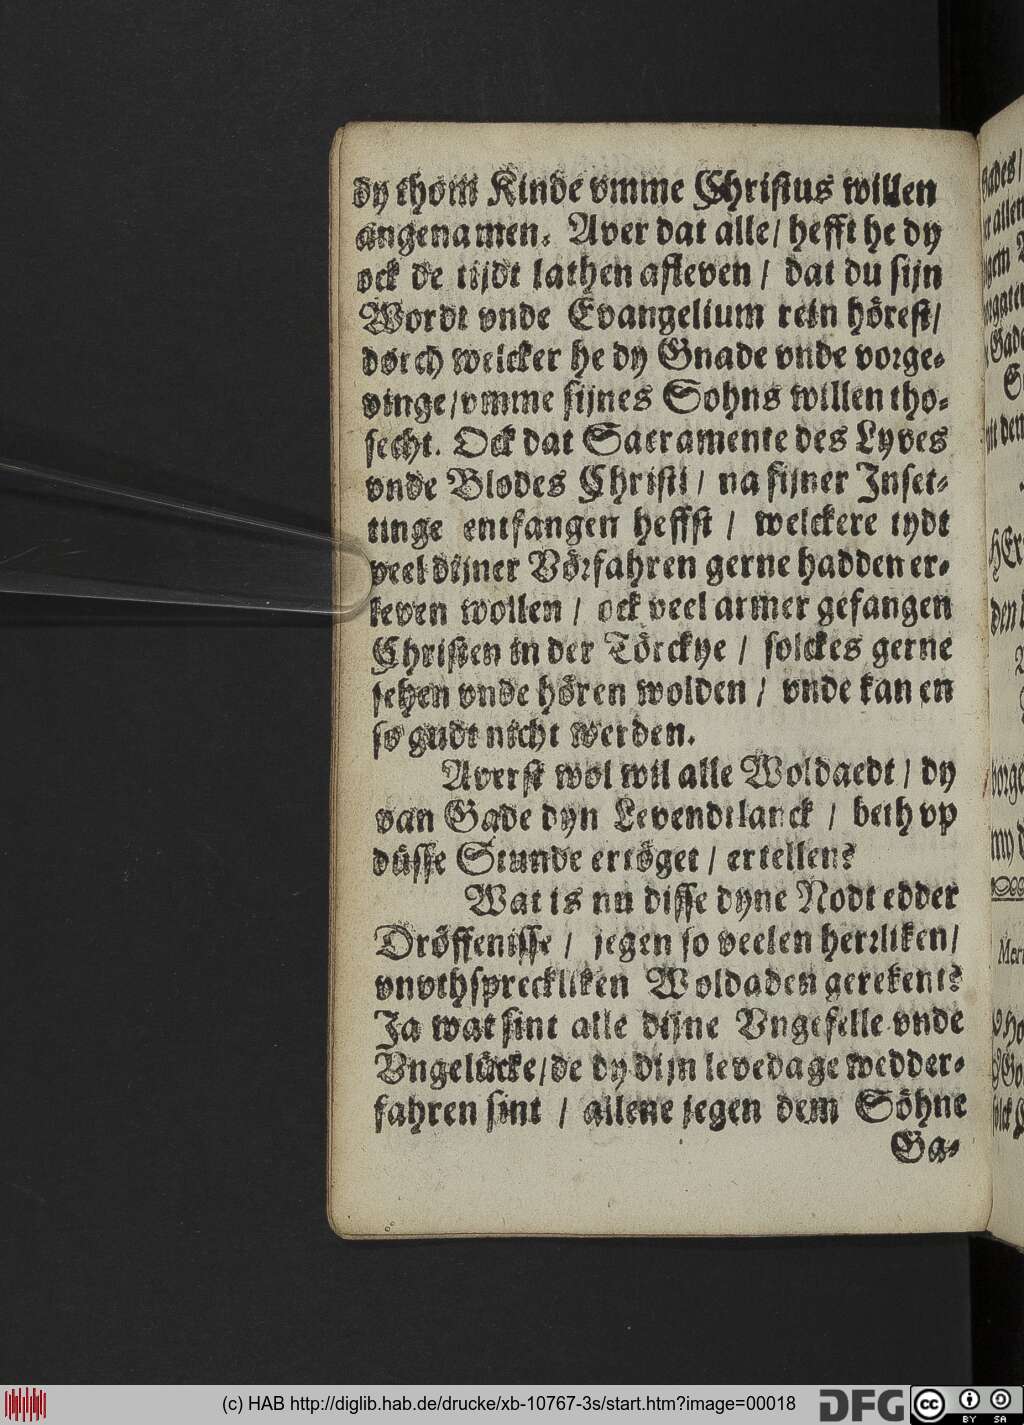 dy thom Kinde vmme Christus willen
angenamen. Aver dat alle/ hefft he dy
ock de tijdt lathen afleven / dat du sijn
Wordt vnde Evangelium rein hörest/
dorch welcker he dy Gnade vnde vorge-
vinge/vmme sijnes Sohns willen tho-
secht. Ock dat Sacramente des Lyves
vnde Blodes Christi / na sijner Inset-
tinge entfangen heffst / welckere tydt
veel dijner Vörfahren gerne hadden er-
leven wollen / ock veel armer gefangen
Christen in der Törckye / solckes gerne
sehen vnde hören wolden / vnde kan en
so gudt nicht werden.
Averst wol wil alle Woldaedt / dy
van Gade dyn Levendtlanck / beth vp
düsse Stunde ertöget / ertellen?
Wat is nu disse dyne Nodt edder
Dröffenisse / jegen so veelen herrliken/
vnvthspreckliken Woldaden gerekent?
Ja wat sint alle dijne Vngefelle vnde
Vngelücke/de dy dijn levedage wedder-
fahren sint / allene jegen dem Söhne
Ga-
(c) HAB http://diglib.hab.de/drucke/xb-10767-3s/start.htm?image=00018
DFG
cc
BY SA